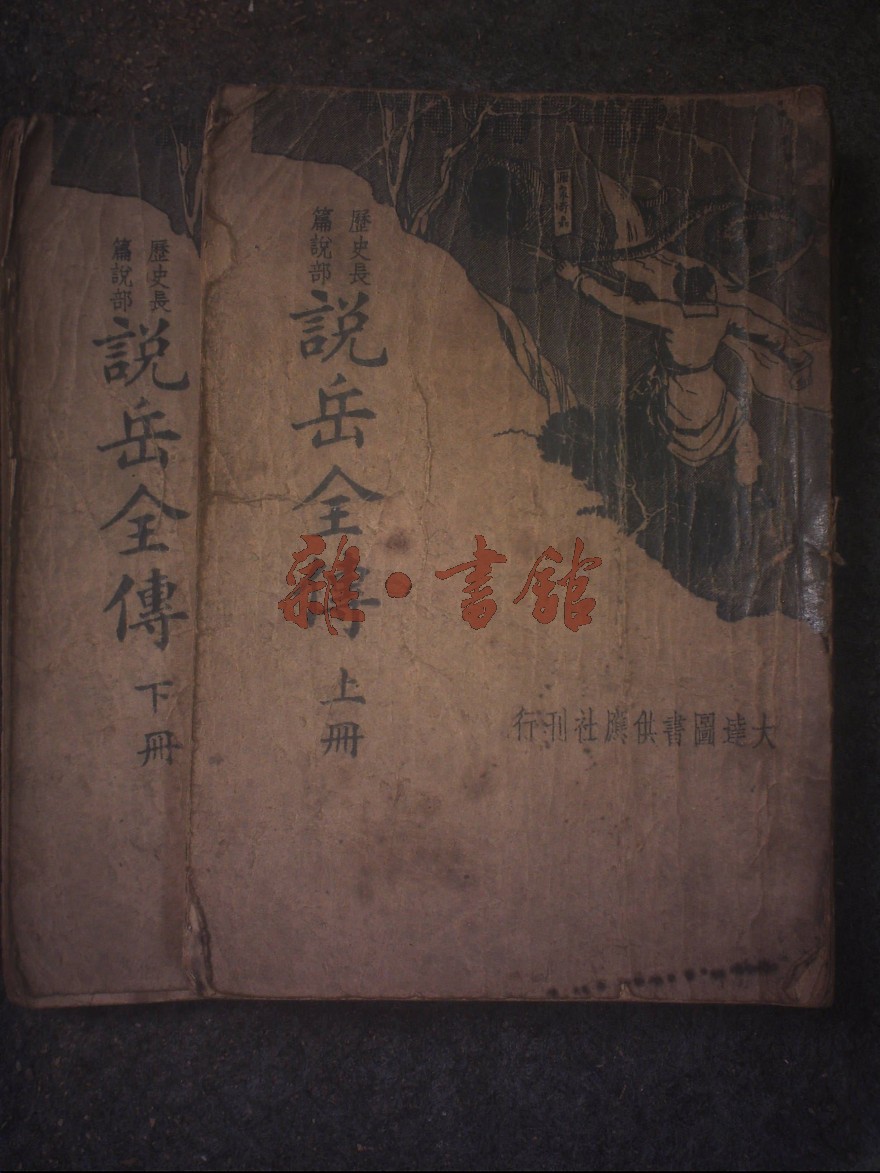 歷史長
篇說部
説岳全傳
下冊
歷史長
篇說部
説岳全傳
上冊
大達圖書供應社刊行
雜·書館